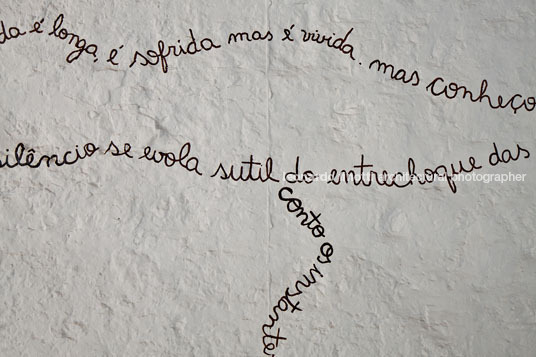 da é longa, é sofrida mas é vivida. mas conheço
silêncio se evola sutil do entrechoque das
conto os instante
photographer